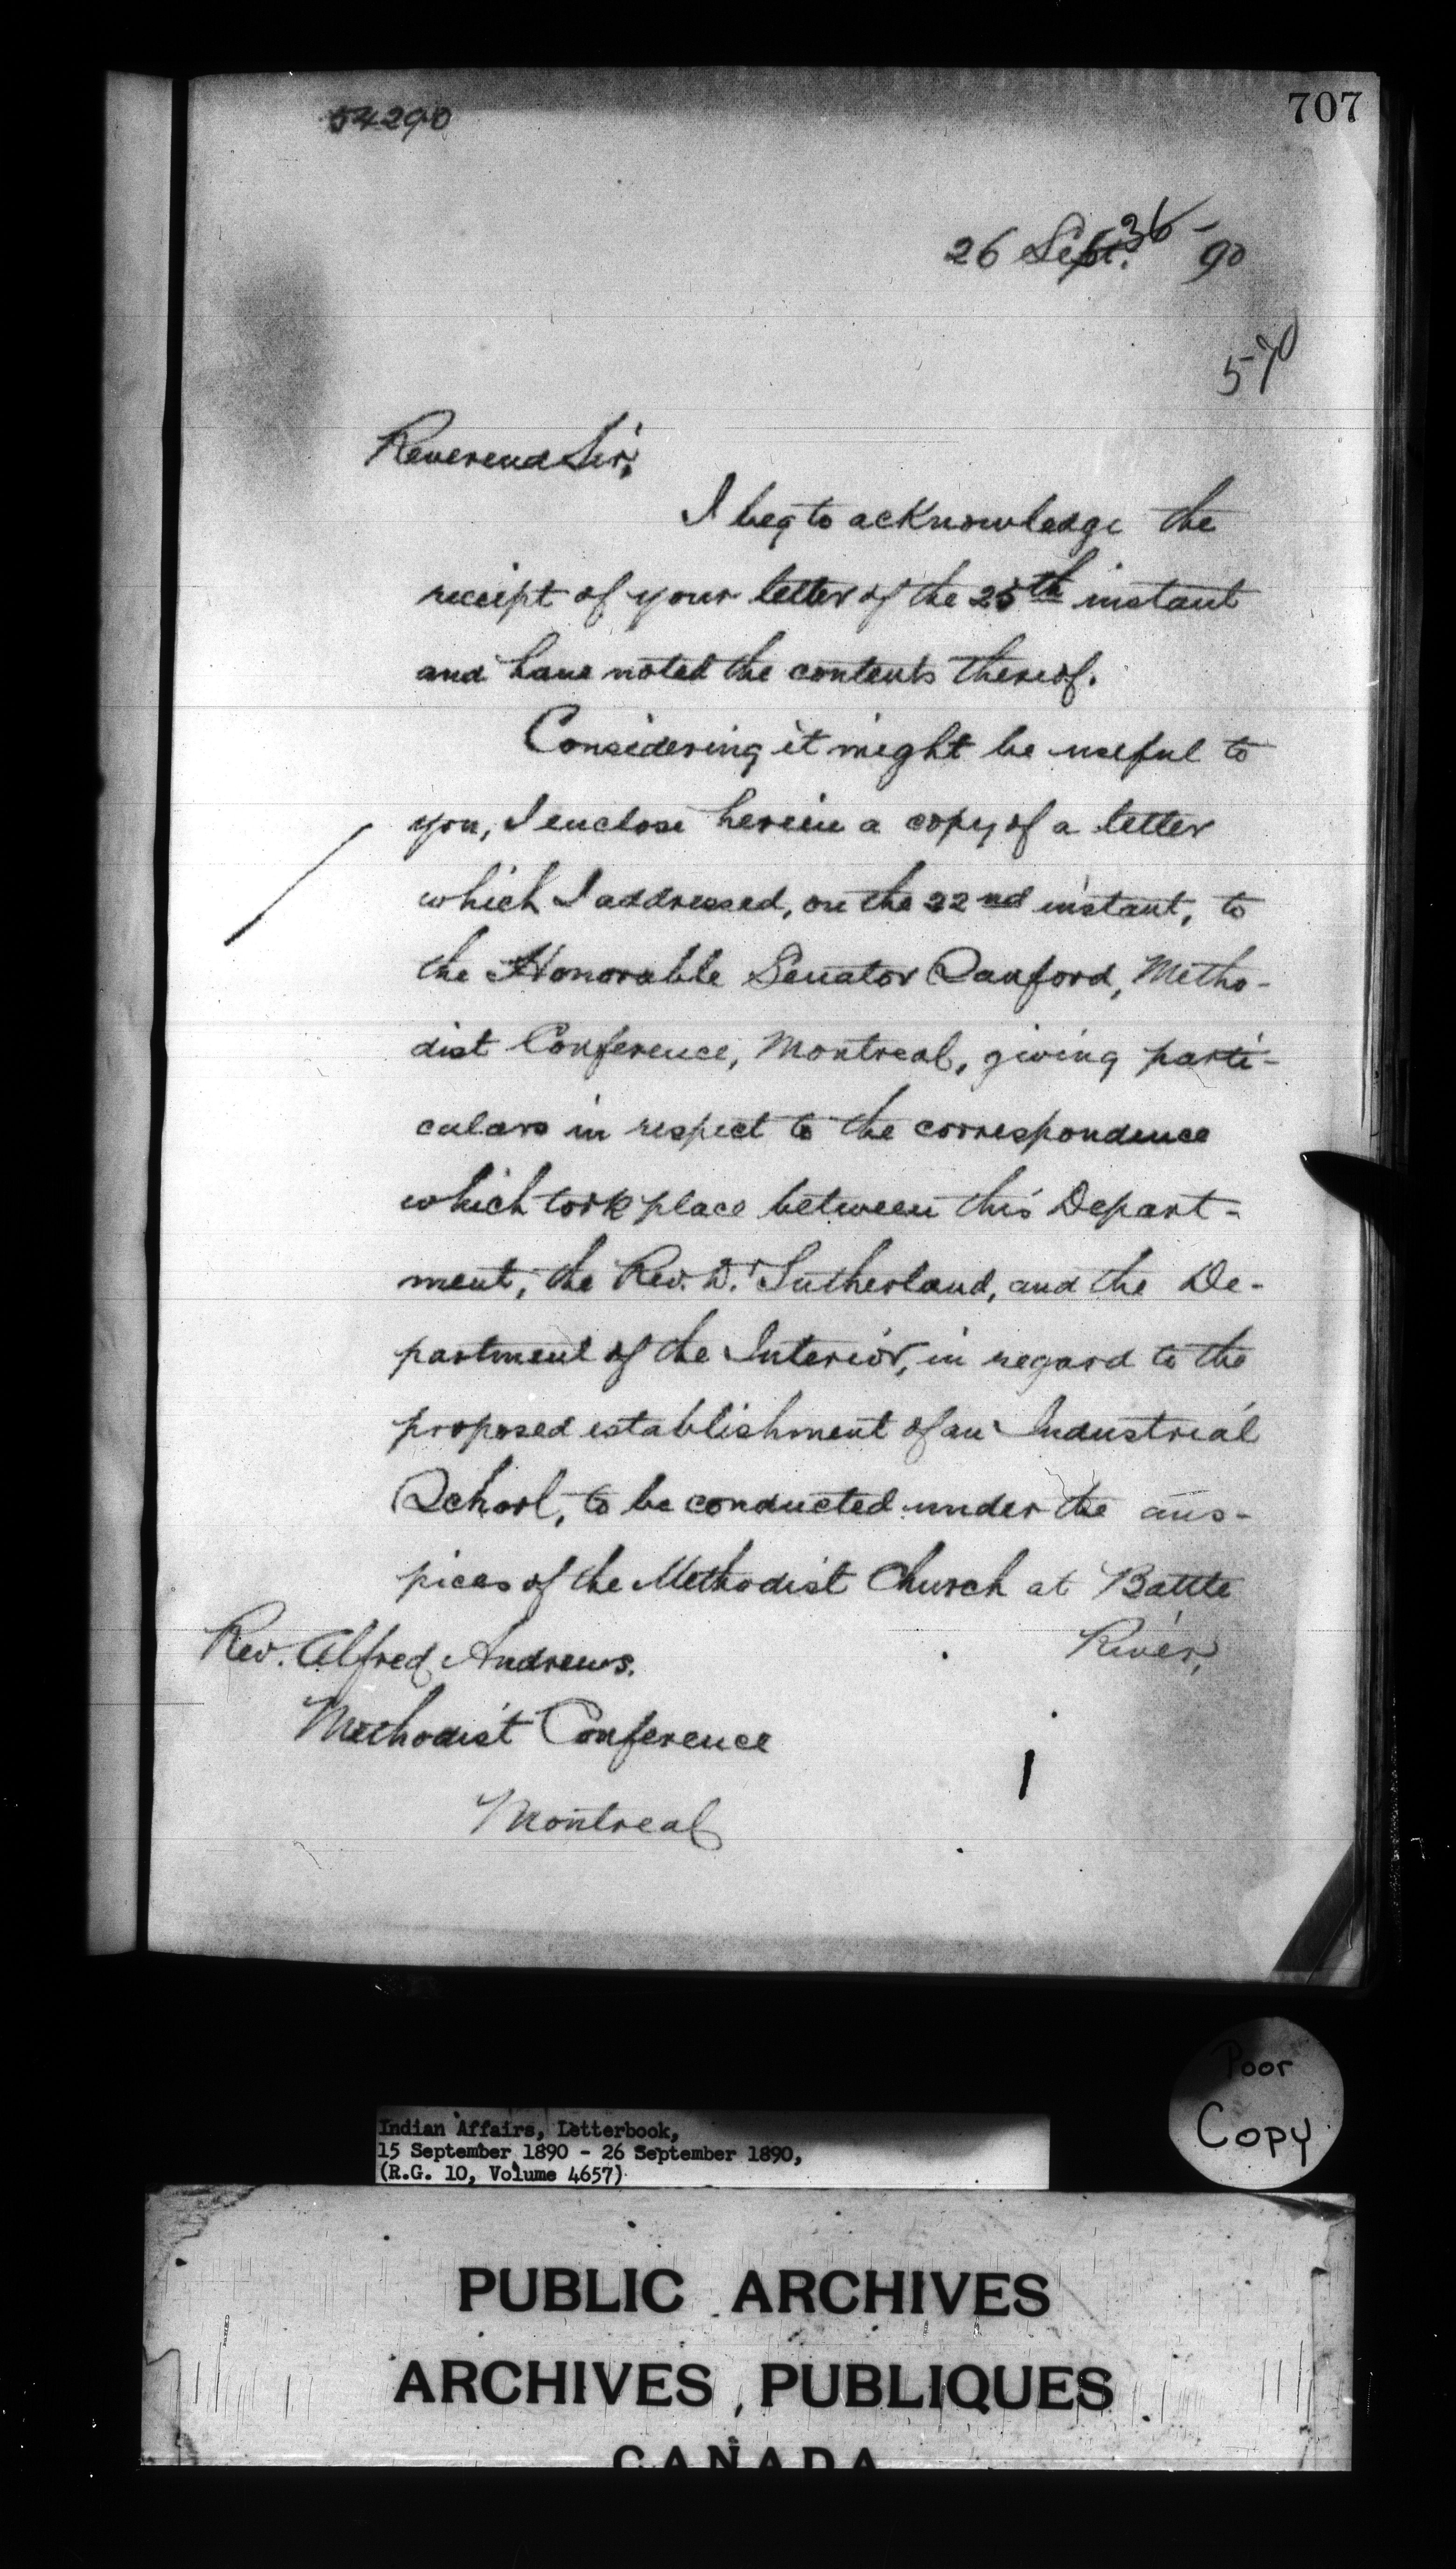 54290
707
26 Sept. 36 - 90
570
Reverend Sir,
I beg to acknowledge the
receipt of your letter of the 25th instant
and have noted the contents thereof.
Considering it might be useful to
you, I enclose herein a copy of a letter
which I addressed, on the 22nd instant, to
the Honorable Senator Sanford, Metho-
dist Conference, Montreal, giving parti-
culars in respect to the correspondence
which took place between this Depart-
ment, the Rev. Dr. Sutherland, and the De-
partment of the Interior, in regard to the
proposed establishment of an Industrial
School, to be conducted under the aus-
pices of the Methodist Church at Battle
River,
Rev. Alfred Andrews.
Methodist Conference
Montreal
Poor
Copy
Indian Affairs, Letterbook,
15 September 1890 - 26 September 1890,
(R.G. 10, Volume 4657)
PUBLIC ARCHIVES
ARCHIVES PUBLIQUES
CANADA